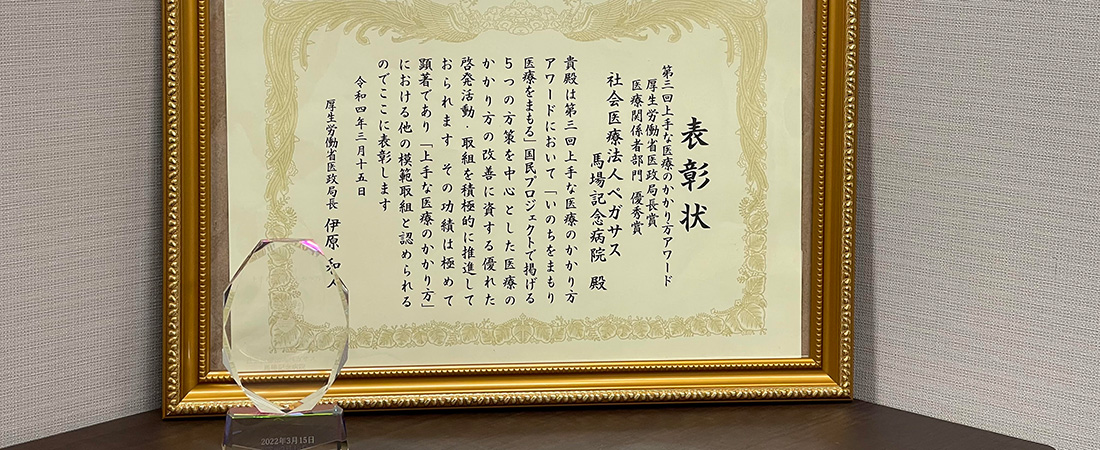 表彰状
第三回上手な医療のかかり方アワード
厚生労働省医政局長賞
医療関係者部門 優秀賞
社会医療法人ペガサス
馬場記念病院 殿
貴殿は第三回上手な医療のかかり方
アワードにおいて「いのちをまもり
医療をまもる」国民プロジェクトで掲げる
5つの方策を中心とした医療の
かかり方の改善に資する優れた
啓発活動・取組を積極的に推進して
おられます その功績は極めて
顕著であり「上手な医療のかかり方」
における他の模範取組と認められる
のでここに表彰します
令和四年三月十五日
厚生労働省医政局長 伊原 和人
2022年3月15日